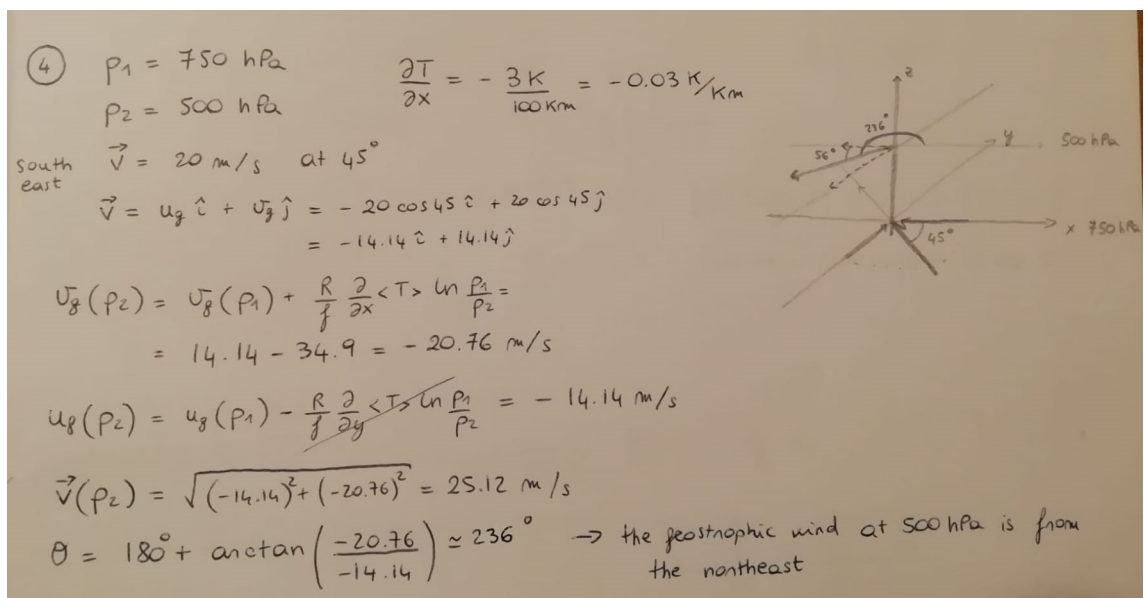 4
p1 = 750 hPa
∂T/∂x = - 3K/100 Km = -0.03 K/Km
p2 = 500 hPa
south east
v⃗ = 20 m/s at 45°
v⃗ = ug î + vg ĵ = - 20 cos45 î + 20 cos 45 ĵ
= -14.14 î + 14.14 ĵ
vg(p2) = vg(p1) + R/f ∂/∂x <T> ln p1/p2 =
= 14.14 - 34.9 = - 20.76 m/s
ug(p2) = ug(p1) - R/f ∂/∂y <T> ln p1/p2 = - 14.14 m/s
v⃗(p2) = √(-14.14)² + (-20.76)² = 25.12 m/s
θ = 180° + arctan (-20.76/-14.14) ≃ 236° → the geostrophic wind at 500 hPa is from
the northeast
z
236°
y
500 hPa
56°
x 750 hPa
45°